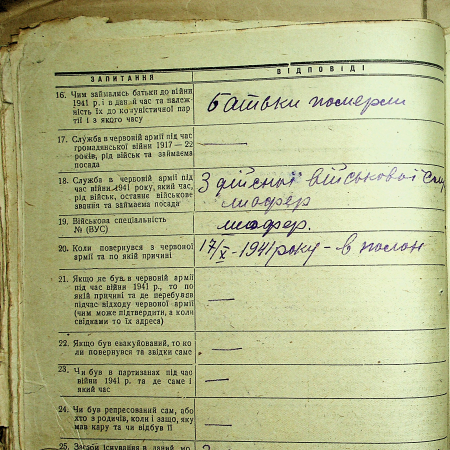 ЗАПИТАННЯ
ВІДПОВІДІ
16. Чим займались батьки до війни
1941 р. і в даний час та належ-
ність їх до комуністичної пар-
тії і з якого часу
Батьки померли
17. Служба в червоній армії під час
громадянської війни 1917—22
років, рід військ та займаема
посада
—
18. Служба в червоній армії під
час війни 1941 року, який час,
рід військ, останнє військове
звання та займаєма посада
З дійсної військової
шофер
19. Військова спеціальність
№ (ВУС)
шофер.
20. Коли повернувся з червоної
армії та по якій причині
17/X-1941 року - в полон
21. Якщо не був в червоній армії
під час війни 1941 р., то по
якій причині та де перебував
підчас відходу червоної армії
(чим може підтвердити, а коли
свідками то їх адреса)
—
22. Якщо був евакуйований, то ко-
ли повернувся та звідки саме
—
23. Чи був в партизанах під час
війни 1941 р. та де саме і
який час
—
24. Чи був репресований сам, або
хто з родичів, коли і защо, яку
мав кару та чи відбув її
—
25. Засоби існування в даний мо-